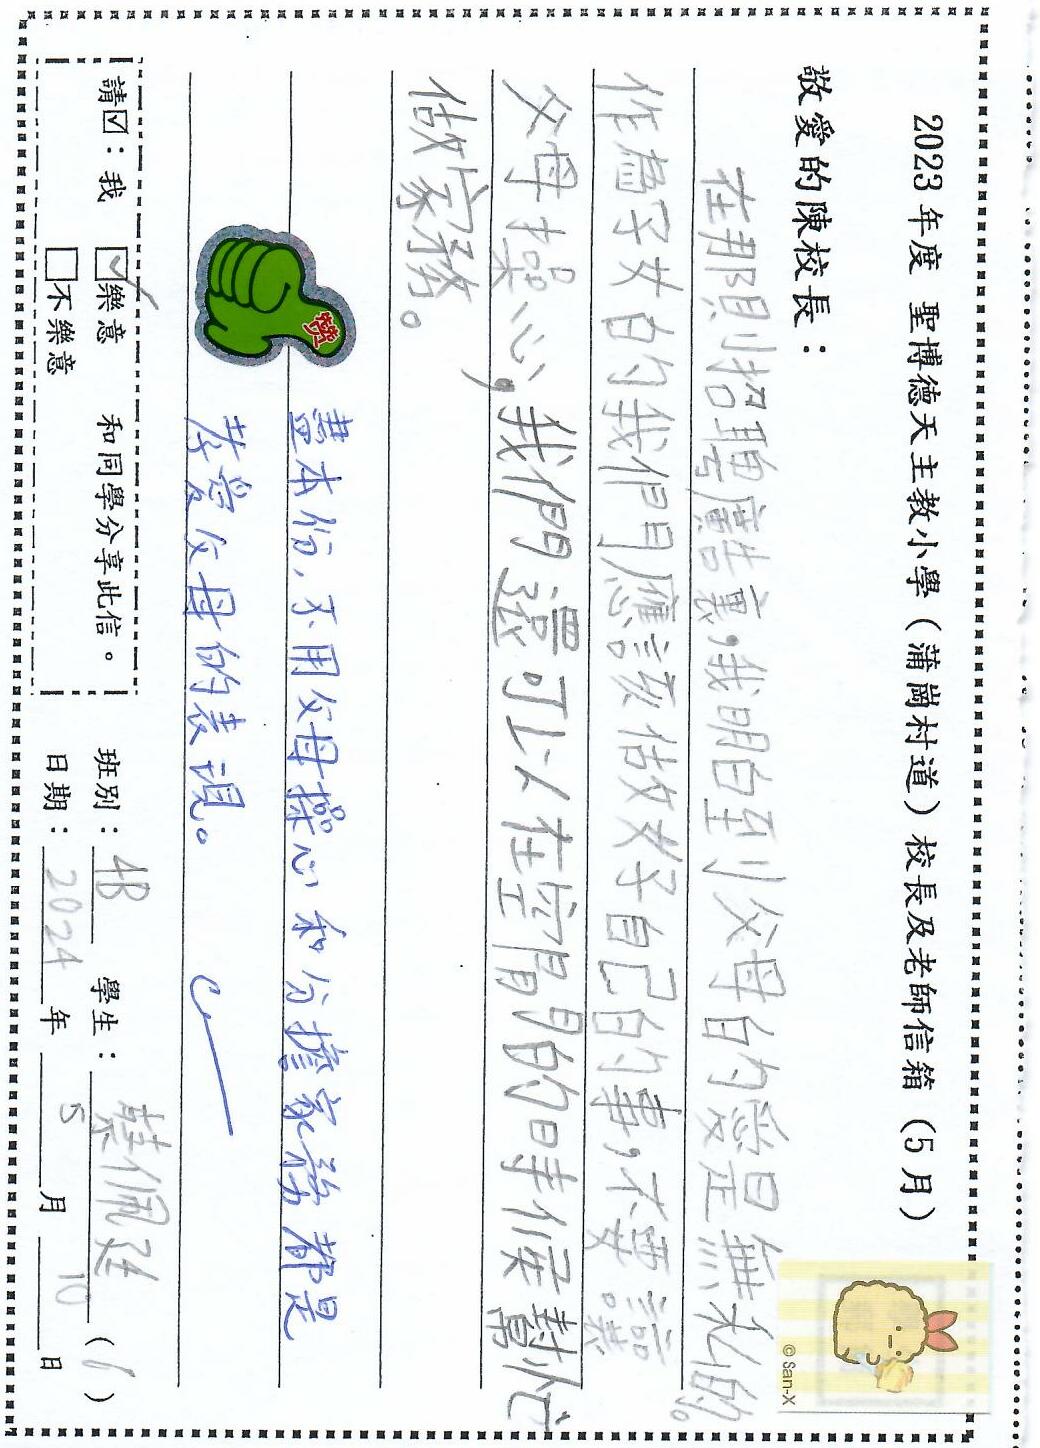 2023年度 聖博德天主教小學(蒲崗村道)校長及老師信箱(5月)
敬愛的陳校長:
在那則招聘廣告裏,我明白到父母的愛是無私的。
作為子女的我們應該做好自己的事,不要讓
父母操心,我們還可以在空閒的時候幫忙
做家務。
盡本份,不用父母操心和分擔家務都是
孝愛父母的表現。
讚
請☑:我 ☑樂意 和同學分享此信。
□不樂意
班別:4B 學生:蔡佩珽(6)
日期:2024年5月10日
© San-X